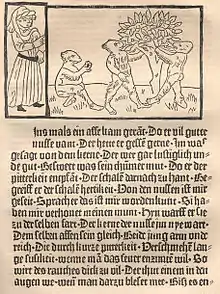 Ins mals ein affe kam gerāt. Do er vil guter
nusse vant. Der hette er gesse gerne. Im was
gesagt von dem kerne. Der wer gar lustiglich vn̄
gut. Beswert was sein tumer mut. Do er der
pitterkeit enpfāt. Der schalē darnach zu hant. Be
greif er der schalē hertikeit. Von den nussen ist mir
geseit. Sprach er das ist mir worden kunt. Si ha
ben mir verhonet meinen munt. Hyn warf er sie
zu der selben fart. Der kerne der nusse im nye wart.
Dem selben affen sein gleich. Beid jung arm vnd
reich. Die durch kurtze pitterkeit. Verschmehen lan
ge sussikeit. wenne mā das feuer enzunten wil. So
wirt des rauches dick zu vil. Der thut einem in den
augen we. wenn man darzu bleset me. Bis es en